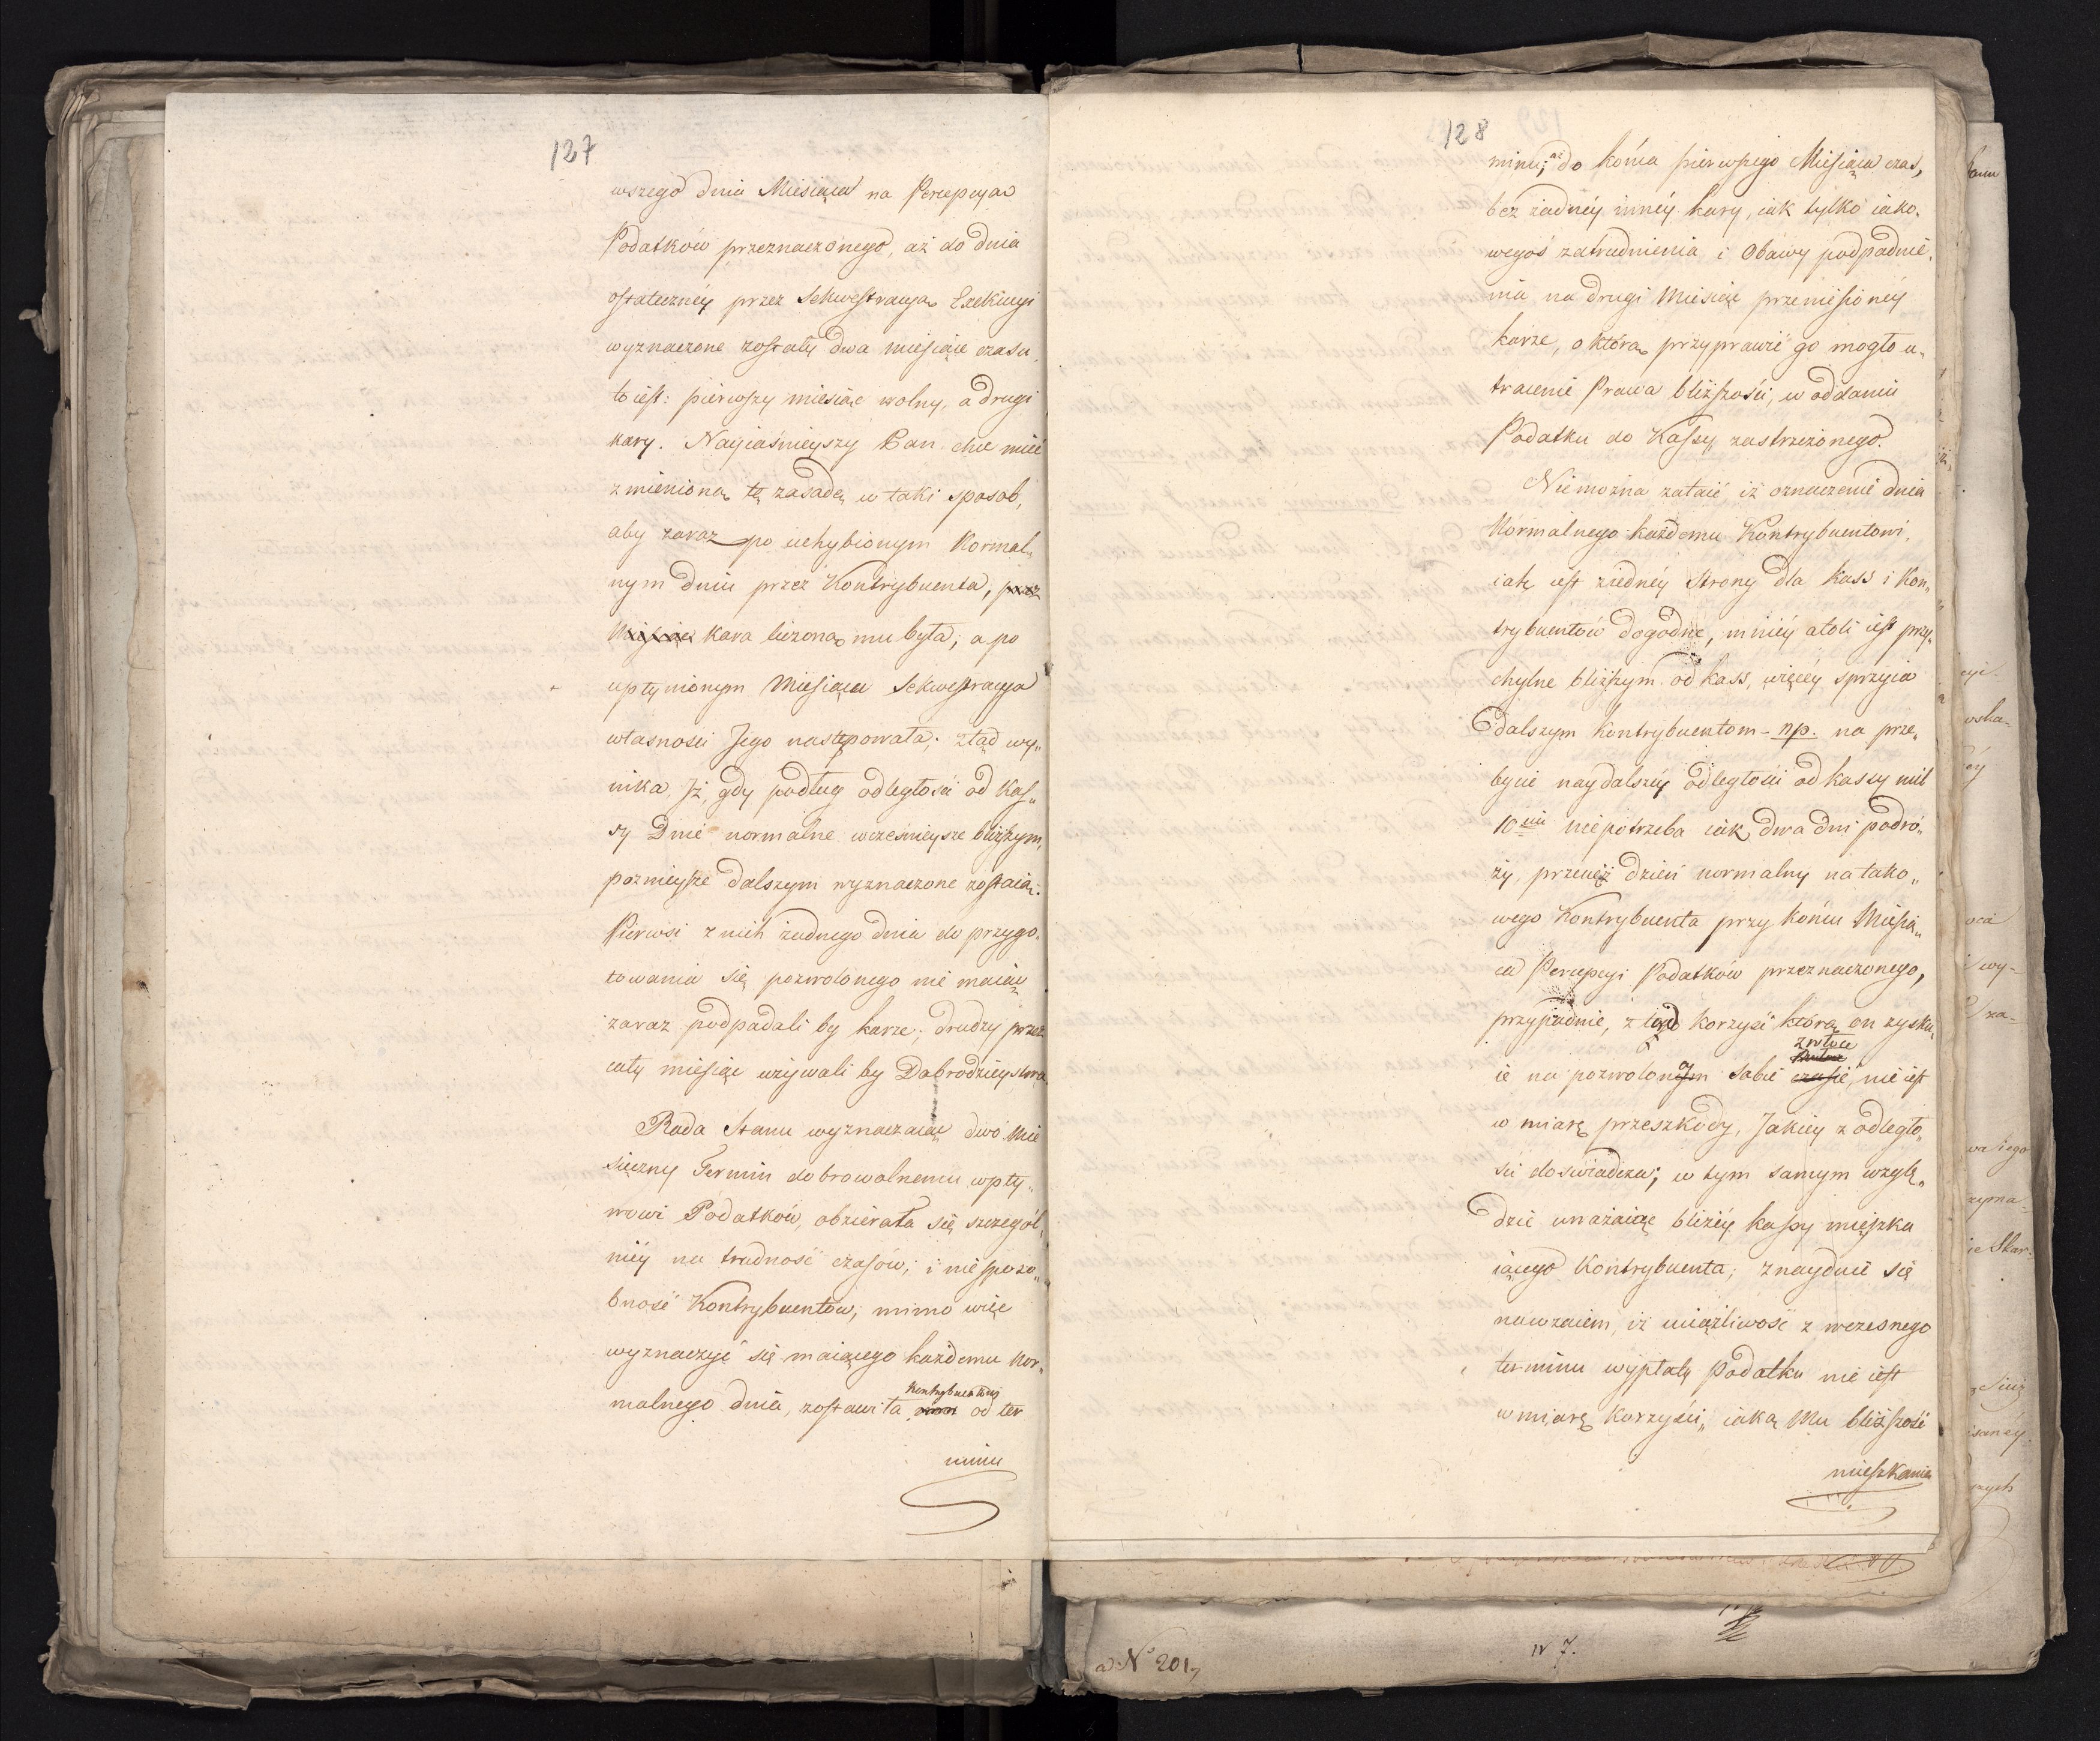 127
wszego dnia Miesiąca na Percepcyą
Podatków przeznaczonego, aż do dnia
ostateczney przez Sekwestracyą Exekucyi
wyznaczone zostały dwa miesiące czasu,
to iest: pierwszy miesiąc wolny, a drugi
kary. Nayiaśnieyszy Pan chce mieć
zmienioną tę zasadę w taki sposob,
aby zaraz po uchybionym Normal„
nym dniu przez Kontrybuenta, przez
Miesiąc kara liczoną mu była; a po
upłynionym Miesiącu Sekwestracya
własności Jego następowała; ztąd wy„
nika, Jż, gdy podług odległości od Kas„
sy Dnie normalne wcześnieysze bliższym,
poznieysze dalszym wyznaczone zostaią.
Pierwsi z nich żadnego dnia do przygo„
towania się pozwolonego nie maiąc
zaraz podpadali by karze; drudzy przez
cały miesiąc używali by Dobrodzieystwa
Rada Stanu wyznaczaiąc dwó Mie
sięczny Termin dobrowolnemu wpły„
wowi Podatków, obzierała się szczegól„
niéy na trudność czasów; i niesposo„
bność Kontrybuentów, mimo więc
wyznaczyć się maiącego każdemu Nor„
Kontrybuentowi
malnego dnia, zostawiła od ter
minu
128
minu, aż do końca pierwszego Miesiąca czas,
bez żadnéy innéy kary, iak tylko iako„
wegoś zatrudnienia i Obawy podpadnie„
nia na drugi Miesiąc przeniesionéy
karze, o którą przyprawić go mogło u„
tracenie Prawa bliższości, w oddaniu
Podatku do Kassy zastrzeżonego.
Nie można zataić, iż oznaczenie dnia
Normalnego każdemu Kontrybuentowi,
iak iest ziednéy Strony dla Kass i Kon„
trybuentów dogodne, mniéy atoli iest przy„
chylne bliższym od kass, więcéy sprzyia
dalszym Kontrybuentom - np. na prze„
bycie naydalszéy odległości od kassy mil
10ciu niepotrzeba iak dwa dni podró„
ży, przecięż dzień normalny na tako„
wego Kontrybuenta przy końcu Miesią„
ca Percepcyi Podatków przeznaczonego,
przypadnie, ztąd korzyść którą on zysku„
zwłoce
ie na pozwolonéy sobie czasie, nie iest
w miarę przeszkody, Jakiey z odległo„
ści doświadcza; w tym samym wzglę„
dzie uważaiąc bliżéy kassy mieszka
iącego Kontrybuenta; znayduie się
nawzaiem, iż uciążliwość z wczesnego
terminu wypłaty Podatku nie iest
w miarę Korzyści, iaką Mu bliższość
mieszkania
ad N° 201,
N 7.